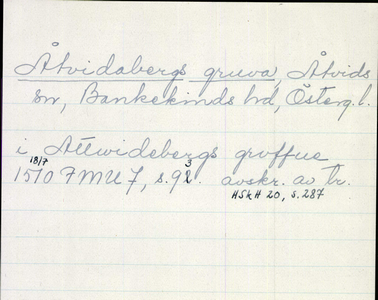 Åtvidabergs gruva, Åtvids
sn, Bankekinds hd, Österg. l.
i Attwidebergs groffue
18/7
1510 FMU 7, s. 93. avskr. av br.
HSkH 20, s. 287